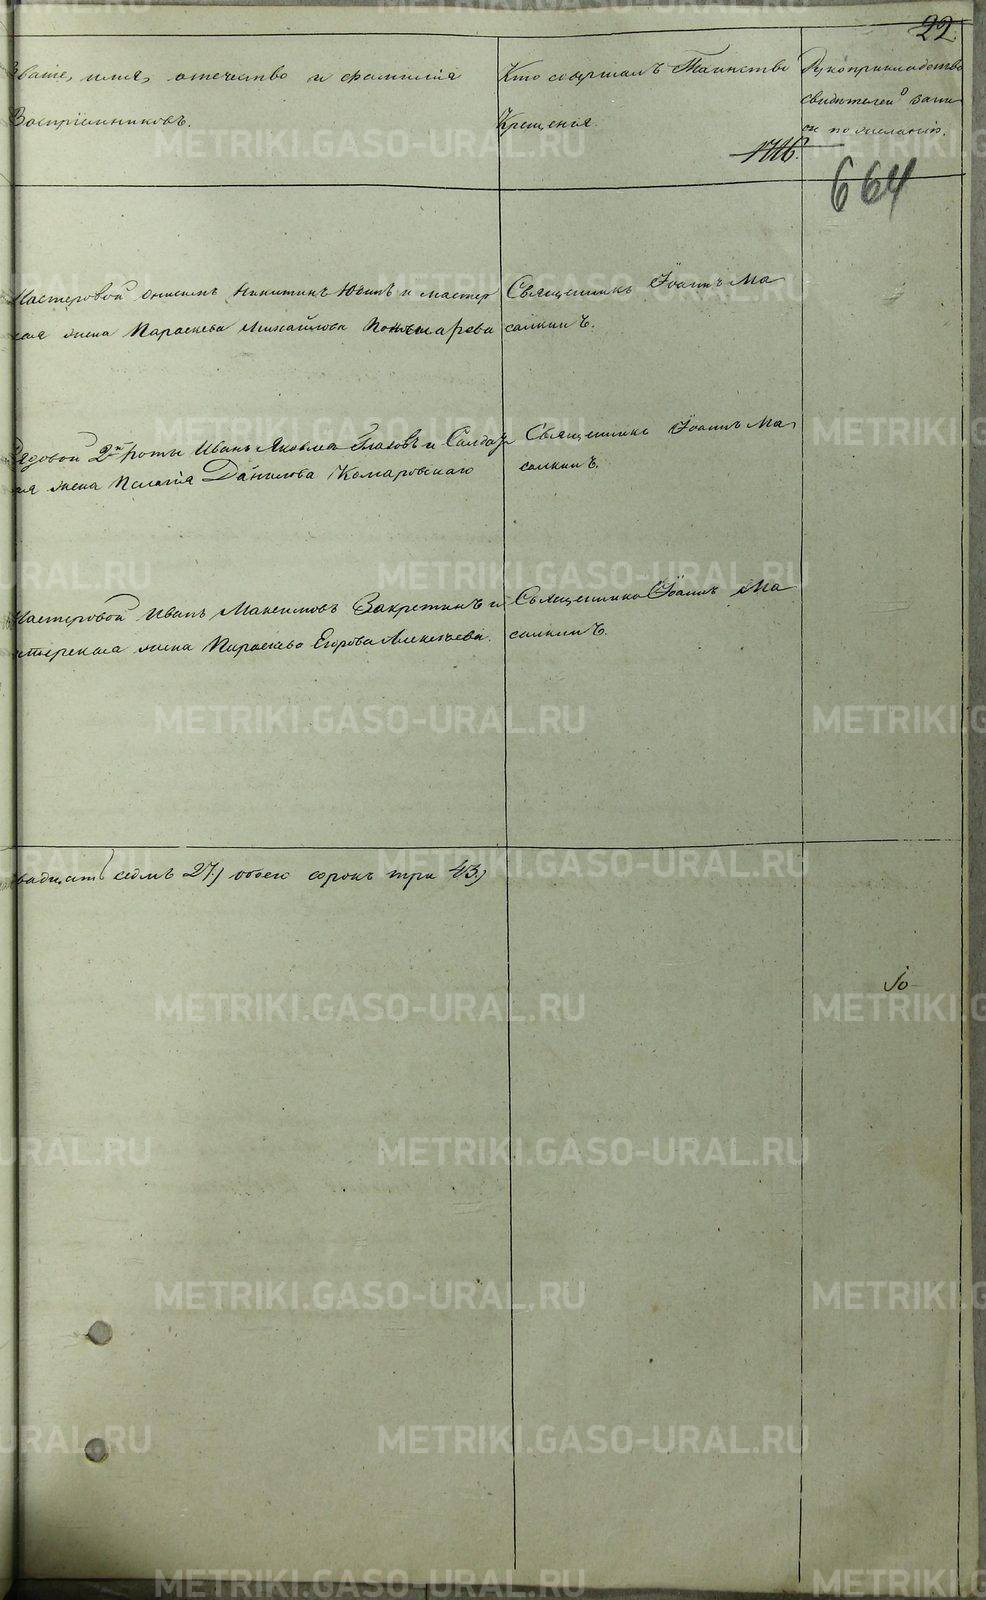 22.
Званіе, имя, отечество и фамилія
Воспріемниковъ.
Кто совершалъ Таинство
Крещенія.
Рукоприкладство
свидѣтелей запи
си по желанію.
1716.
664
Мастеровой Никитинъ и мастер
ская жена Параскева Михайлова
Священникъ Іоаннъ Ма
салкинъ.
Рядовой 2й роты Иванъ Яковлевъ Глаховъ и Салдат
ская жена Пелагія Данилова Комаровскаго
Священникъ Іоаннъ Ма
салкинъ.
Мастеровой Иванъ Максимовъ Закретинъ и
мастерская жена Параскева Егорова Алексѣева.
Священникъ Іоаннъ Ма
салкинъ.
двадцать седмь 27.) обоего сорокъ три 43.)
METRIKI.GASO-URAL.RU